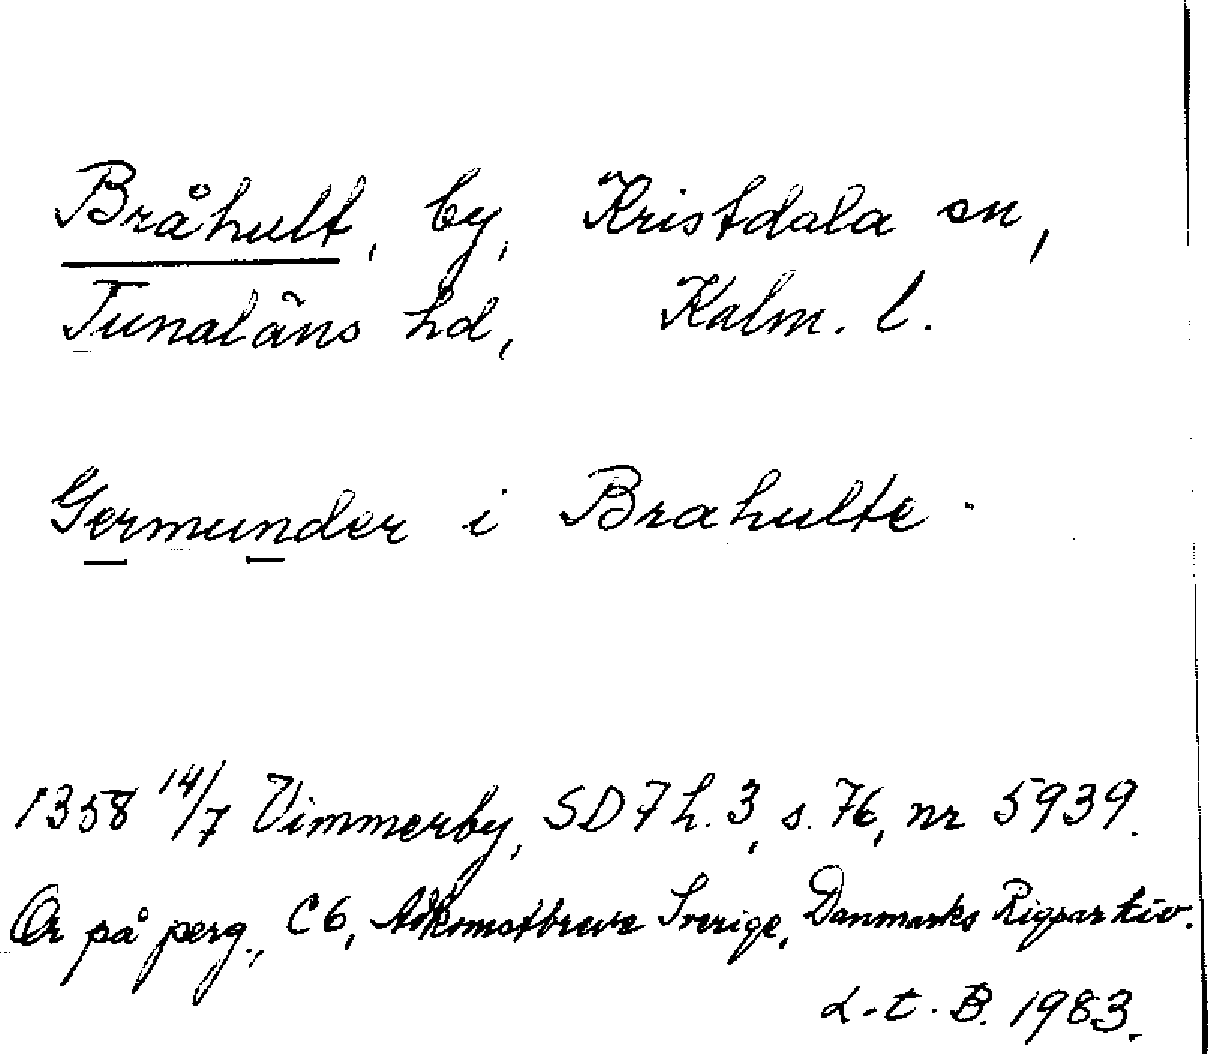 Bråhult, by, Kristdala sn,
Tunaläns hd, Kalm. l.
Germunder i Brahulte.
1358 14/7 Vimmerby, SD 7 h. 3, s. 76, nr 5939.
Or på perg., C6, Adkomstbreve Sverige, Danmarks Rigsarkiv.
L.t.B. 1983.